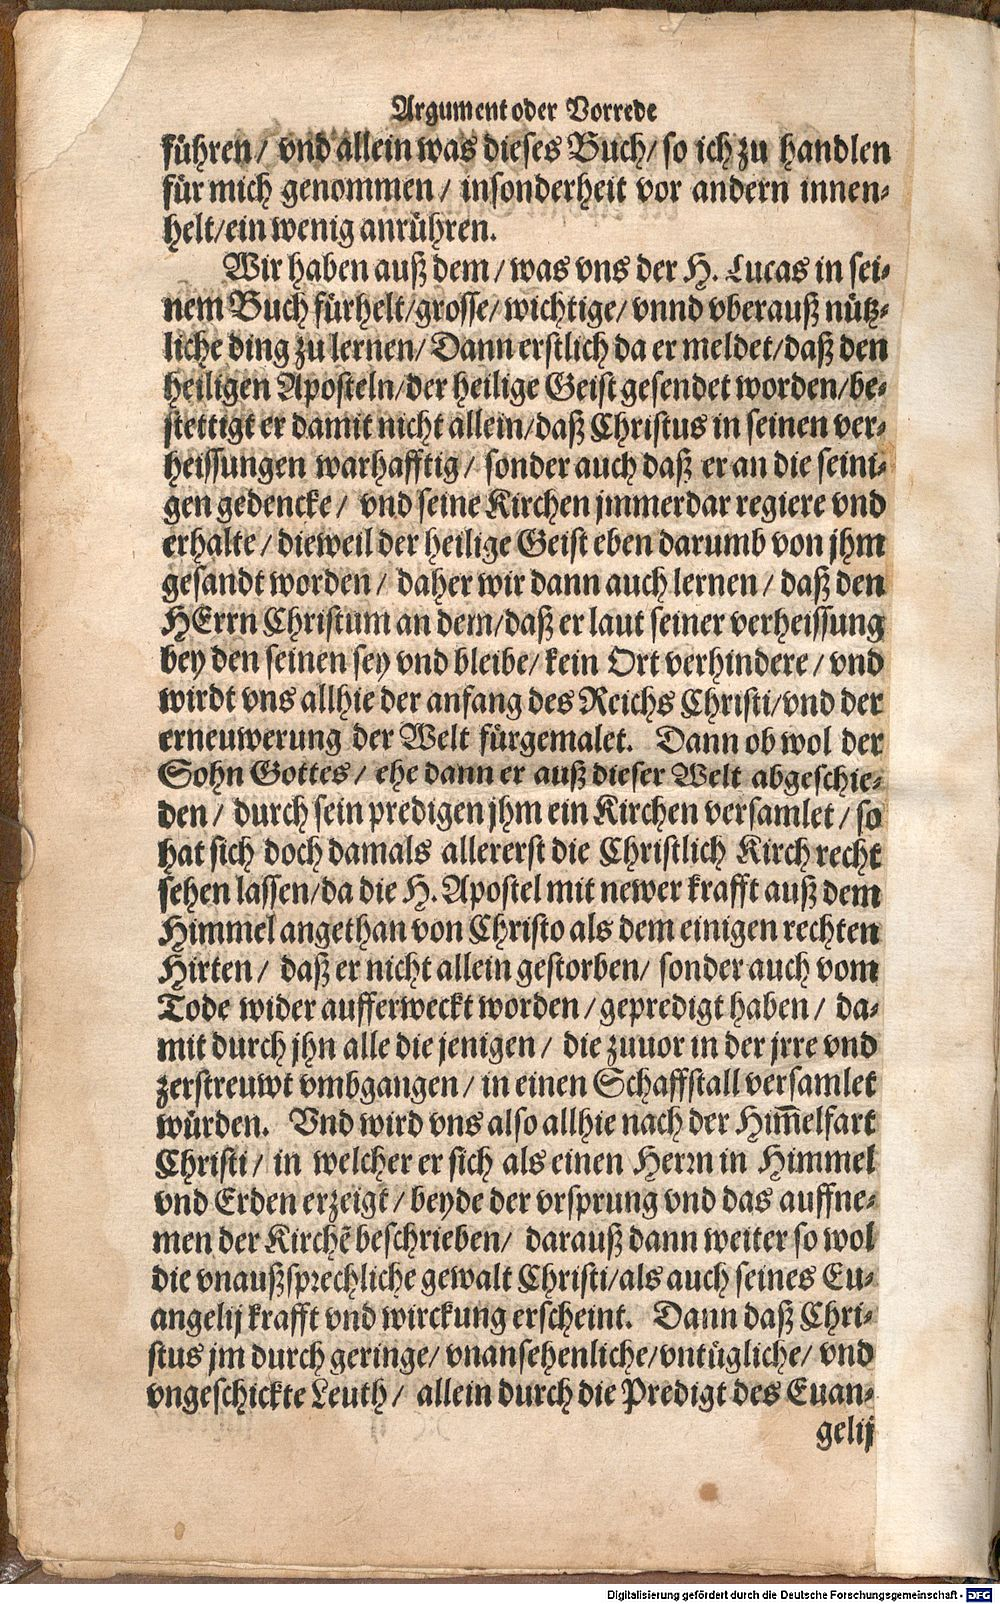 Argument oder Vorrede
führen/ vnd allein was dieses Buch/ so ich zu handlen
für mich genommen/ insonderheit vor andern innen-
helt/ein wenig anrühren.
Wir haben auß dem/ was vns der H. Lucas in sei-
nem Buch fürhelt/grosse/ wichtige/ vnnd vberauß nütz-
liche ding zu lernen/ Dann erstlich da er meldet/daß den
heiligen Aposteln/der heilige Geist gesendet worden/be-
stettigt er damit nicht allein/daß Christus in seinen ver-
heissungen warhafftig/ sonder auch daß er an die seini-
gen gedencke/ vnd seine Kirchen jmmerdar regiere vnd
erhalte/ dieweil der heilige Geist eben darumb von jhm
gesandt worden/ daher wir dann auch lernen/ daß den
HErrn Christum an dem/daß er laut seiner verheissung
bey den seinen sey vnd bleibe/ kein Ort verhindere/ vnd
wirdt vns allhie der anfang des Reichs Christi/vnd der
erneuwerung der Welt fürgemalet. Dann ob wol der
Sohn Gottes/ ehe dann er auß dieser Welt abgeschie-
den/ durch sein predigen jhm ein Kirchen versamlet/ so
hat sich doch damals allererst die Christlich Kirch recht
sehen lassen/da die H. Apostel mit newer krafft auß dem
Himmel angethan von Christo als dem einigen rechten
Hirten/ daß er nicht allein gestorben/ sonder auch vom
Tode wider aufferweckt worden/gepredigt haben/ da-
mit durch jhn alle die jenigen/ die zuuor in der jrre vnd
zerstreuwt vmbgangen/ in einen Schaffstall versamlet
würden. Vnd wird vns also allhie nach der Him̃elfart
Christi/ in welcher er sich als einen Herrn in Himmel
vnd Erden erzeigt/ beyde der vrsprung vnd das auffne-
men der Kirchẽ beschrieben/ darauß dann weiter so wol
die vnaußsprechliche gewalt Christi/als auch seines Eu-
angelij krafft vnd wirckung erscheint. Dann daß Chri-
stus jm durch geringe/ vnansehenliche/vntügliche/ vnd
vngeschickte Leuth/ allein durch die Predigt des Euan-
gelij
Digitalisierung gefördert durch die Deutsche Forschungsgemeinschaft - DFG